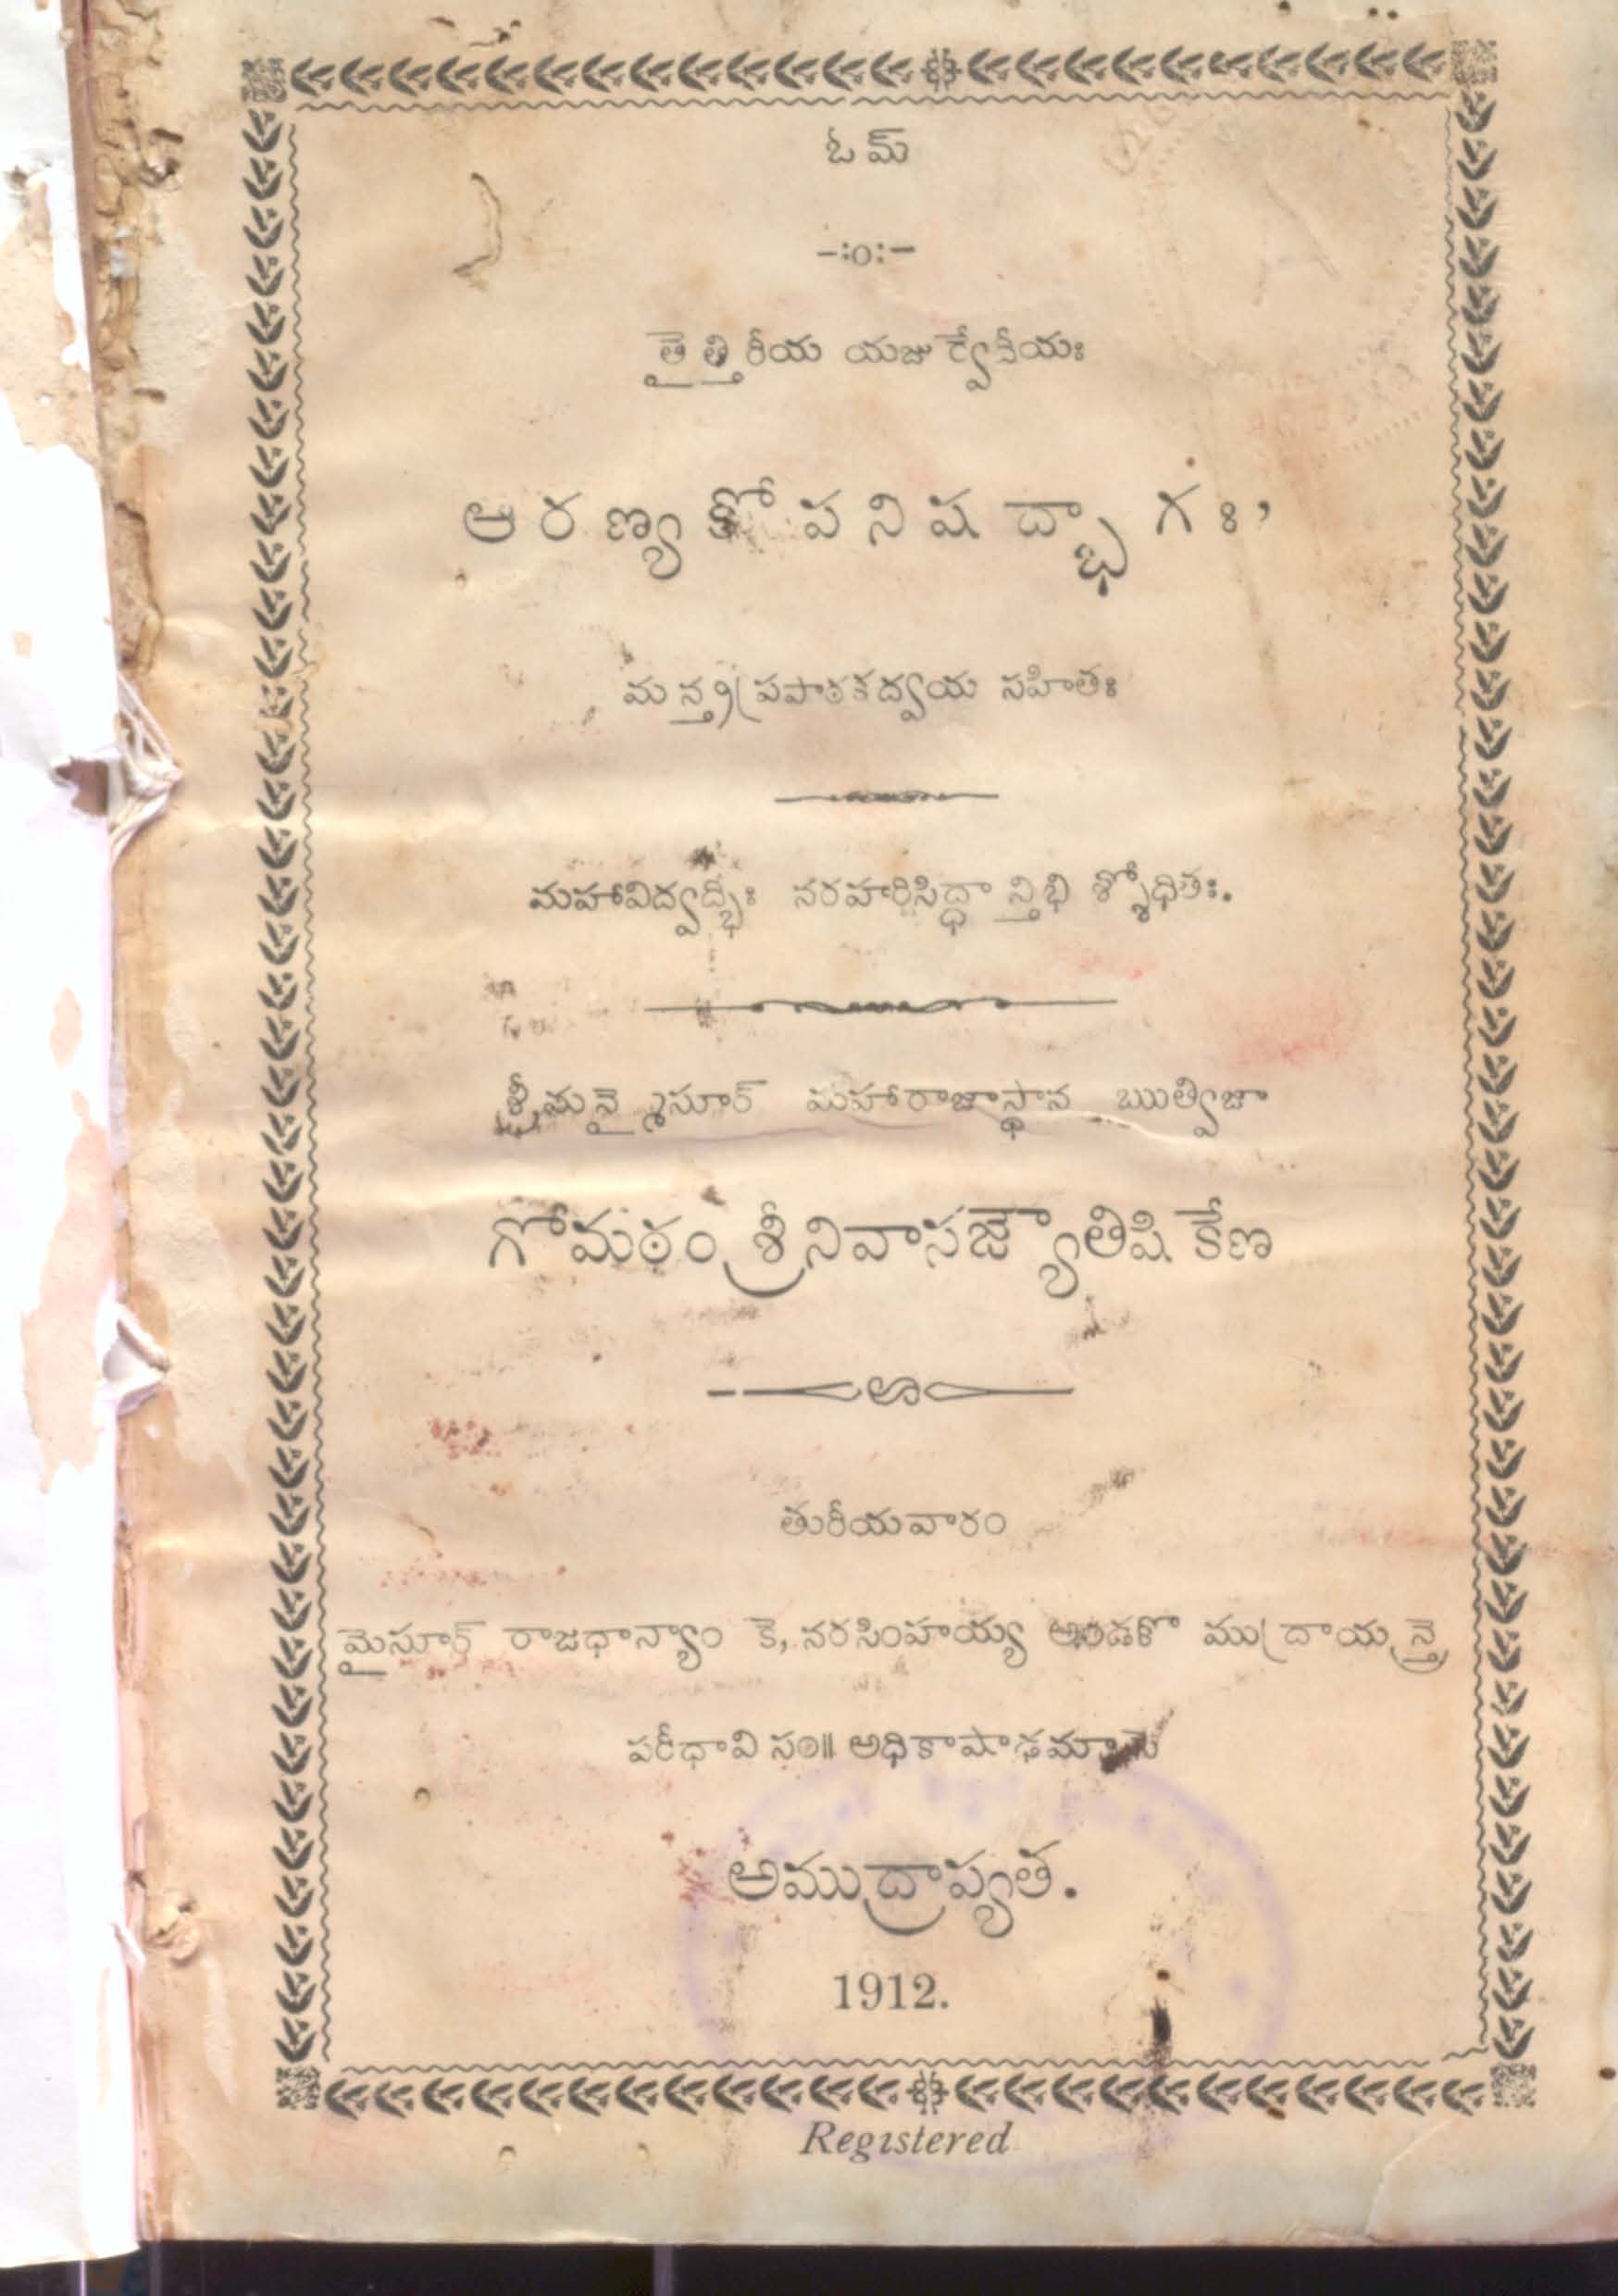 ఓమ్
-:o:-
తైత్తిరీయ యజుర్వేదీయః
ఆరణ్యకోపనిషద్భాగః
మన్త్రప్రపాఠకద్వయ సహితః
మహావిద్వద్భిః నరహరిసిద్ధాన్తిభి శ్శోధితః.
శ్రీమన్మైసూర్ మహారాజాస్థాన ఋత్విజా
గోమఠం శ్రీనివాసజ్యౌతిషికేణ
తురీయవారం
మైసూర్ రాజధాన్యాం కె, నరసింహయ్య అండకొ ముద్రాయన్త్రె
పరీధావి సం॥ అధికాషాఢమాసె
అముద్రాప్యత.
1912.
Registered